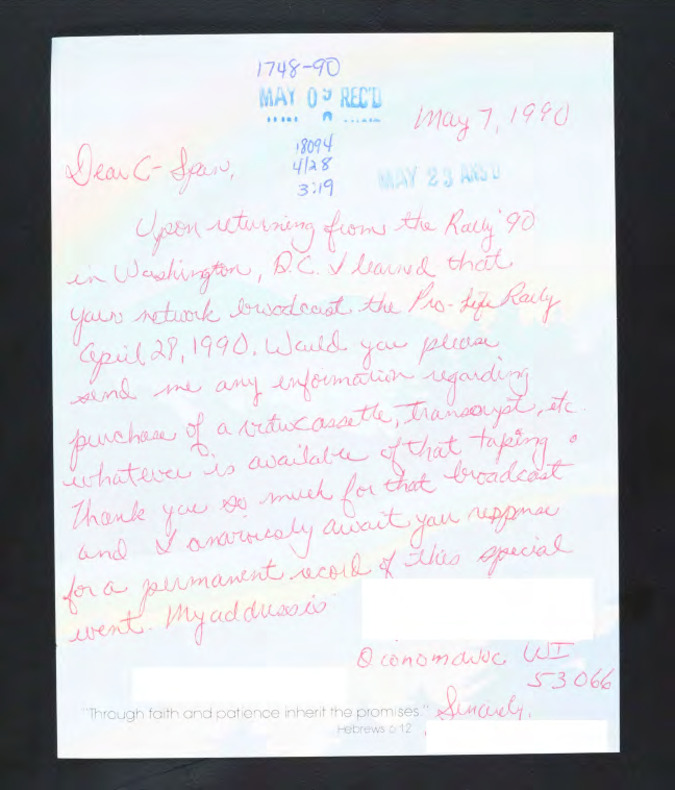 1748-90
MAY 09 REC'D
May 7, 1990
18094
4/28
3:19
MAY 23 ANS'D
Dear C-Span,
Upon returning from the Rally '90
in Washington, D.C. I learned that
your network broadcast the Pro-Life Rally
April 28, 1990. Would you please
send me any information regarding
purchase of a videocassette, transcript, etc.
whatever is available of that taping.
Thank you so much for that broadcast
and I anxiously await your response
for a permanent record of this special
event. My address is
Oconomowoc WI
53066
"Through faith and patience inherit the promises."
Hebrews 6:12
Sincerely,